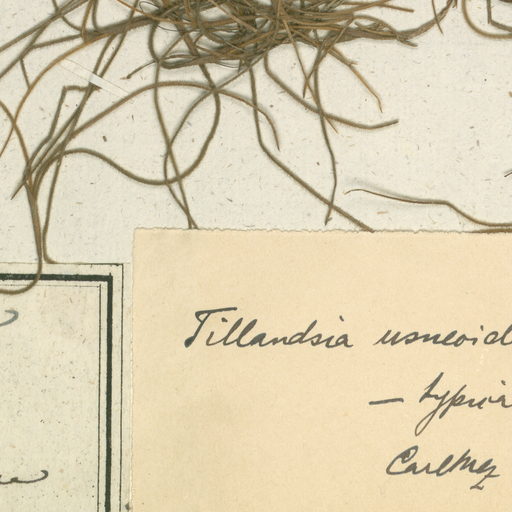 Tillandsia usneoid
— typica
Carl Mez